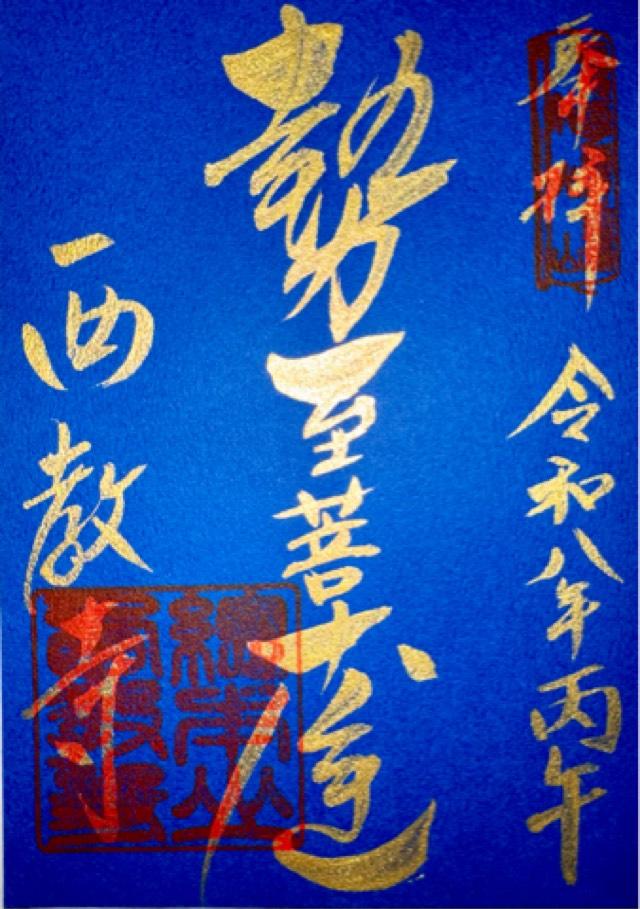 奉拝
令和八年丙午
勢至菩薩
西教寺
總本山